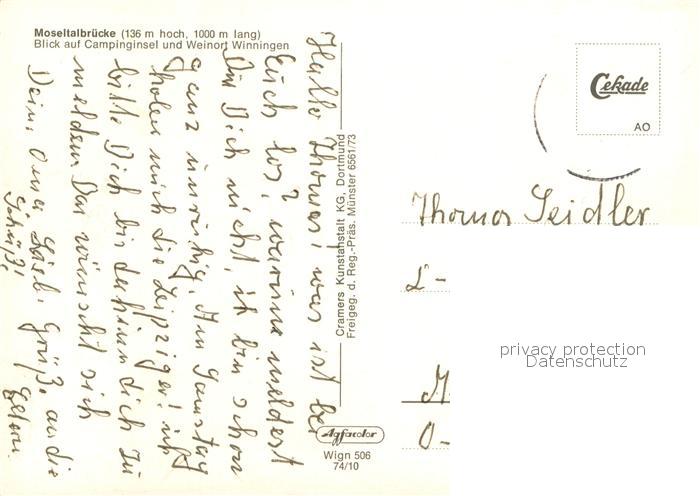 Moseltalbrücke (136 m hoch, 1000 m lang)
Blick auf Campinginsel und Weinort Winningen
Hallo Thomas! was ist bei
Euch los? warum meldest
Du Dich nicht, ich bin schon
ganz unruhig. Am Samstag
holen mich die Leipziger! ich
bitte Dich bis dahin dich zu
melden. Das wünscht sich
Deine Oma, Lieb. Grüß. an die
Eltern.
Tschüß!
Cramers Kunstanstalt KG, Dortmund
Freigeg. d. Reg.-Präs. Münster 6561/73
Agfacolor
Wign 506
74/10
Cekade
AO
Thomas Seidler
L-
M
O-
privacy protection
Datenschutz